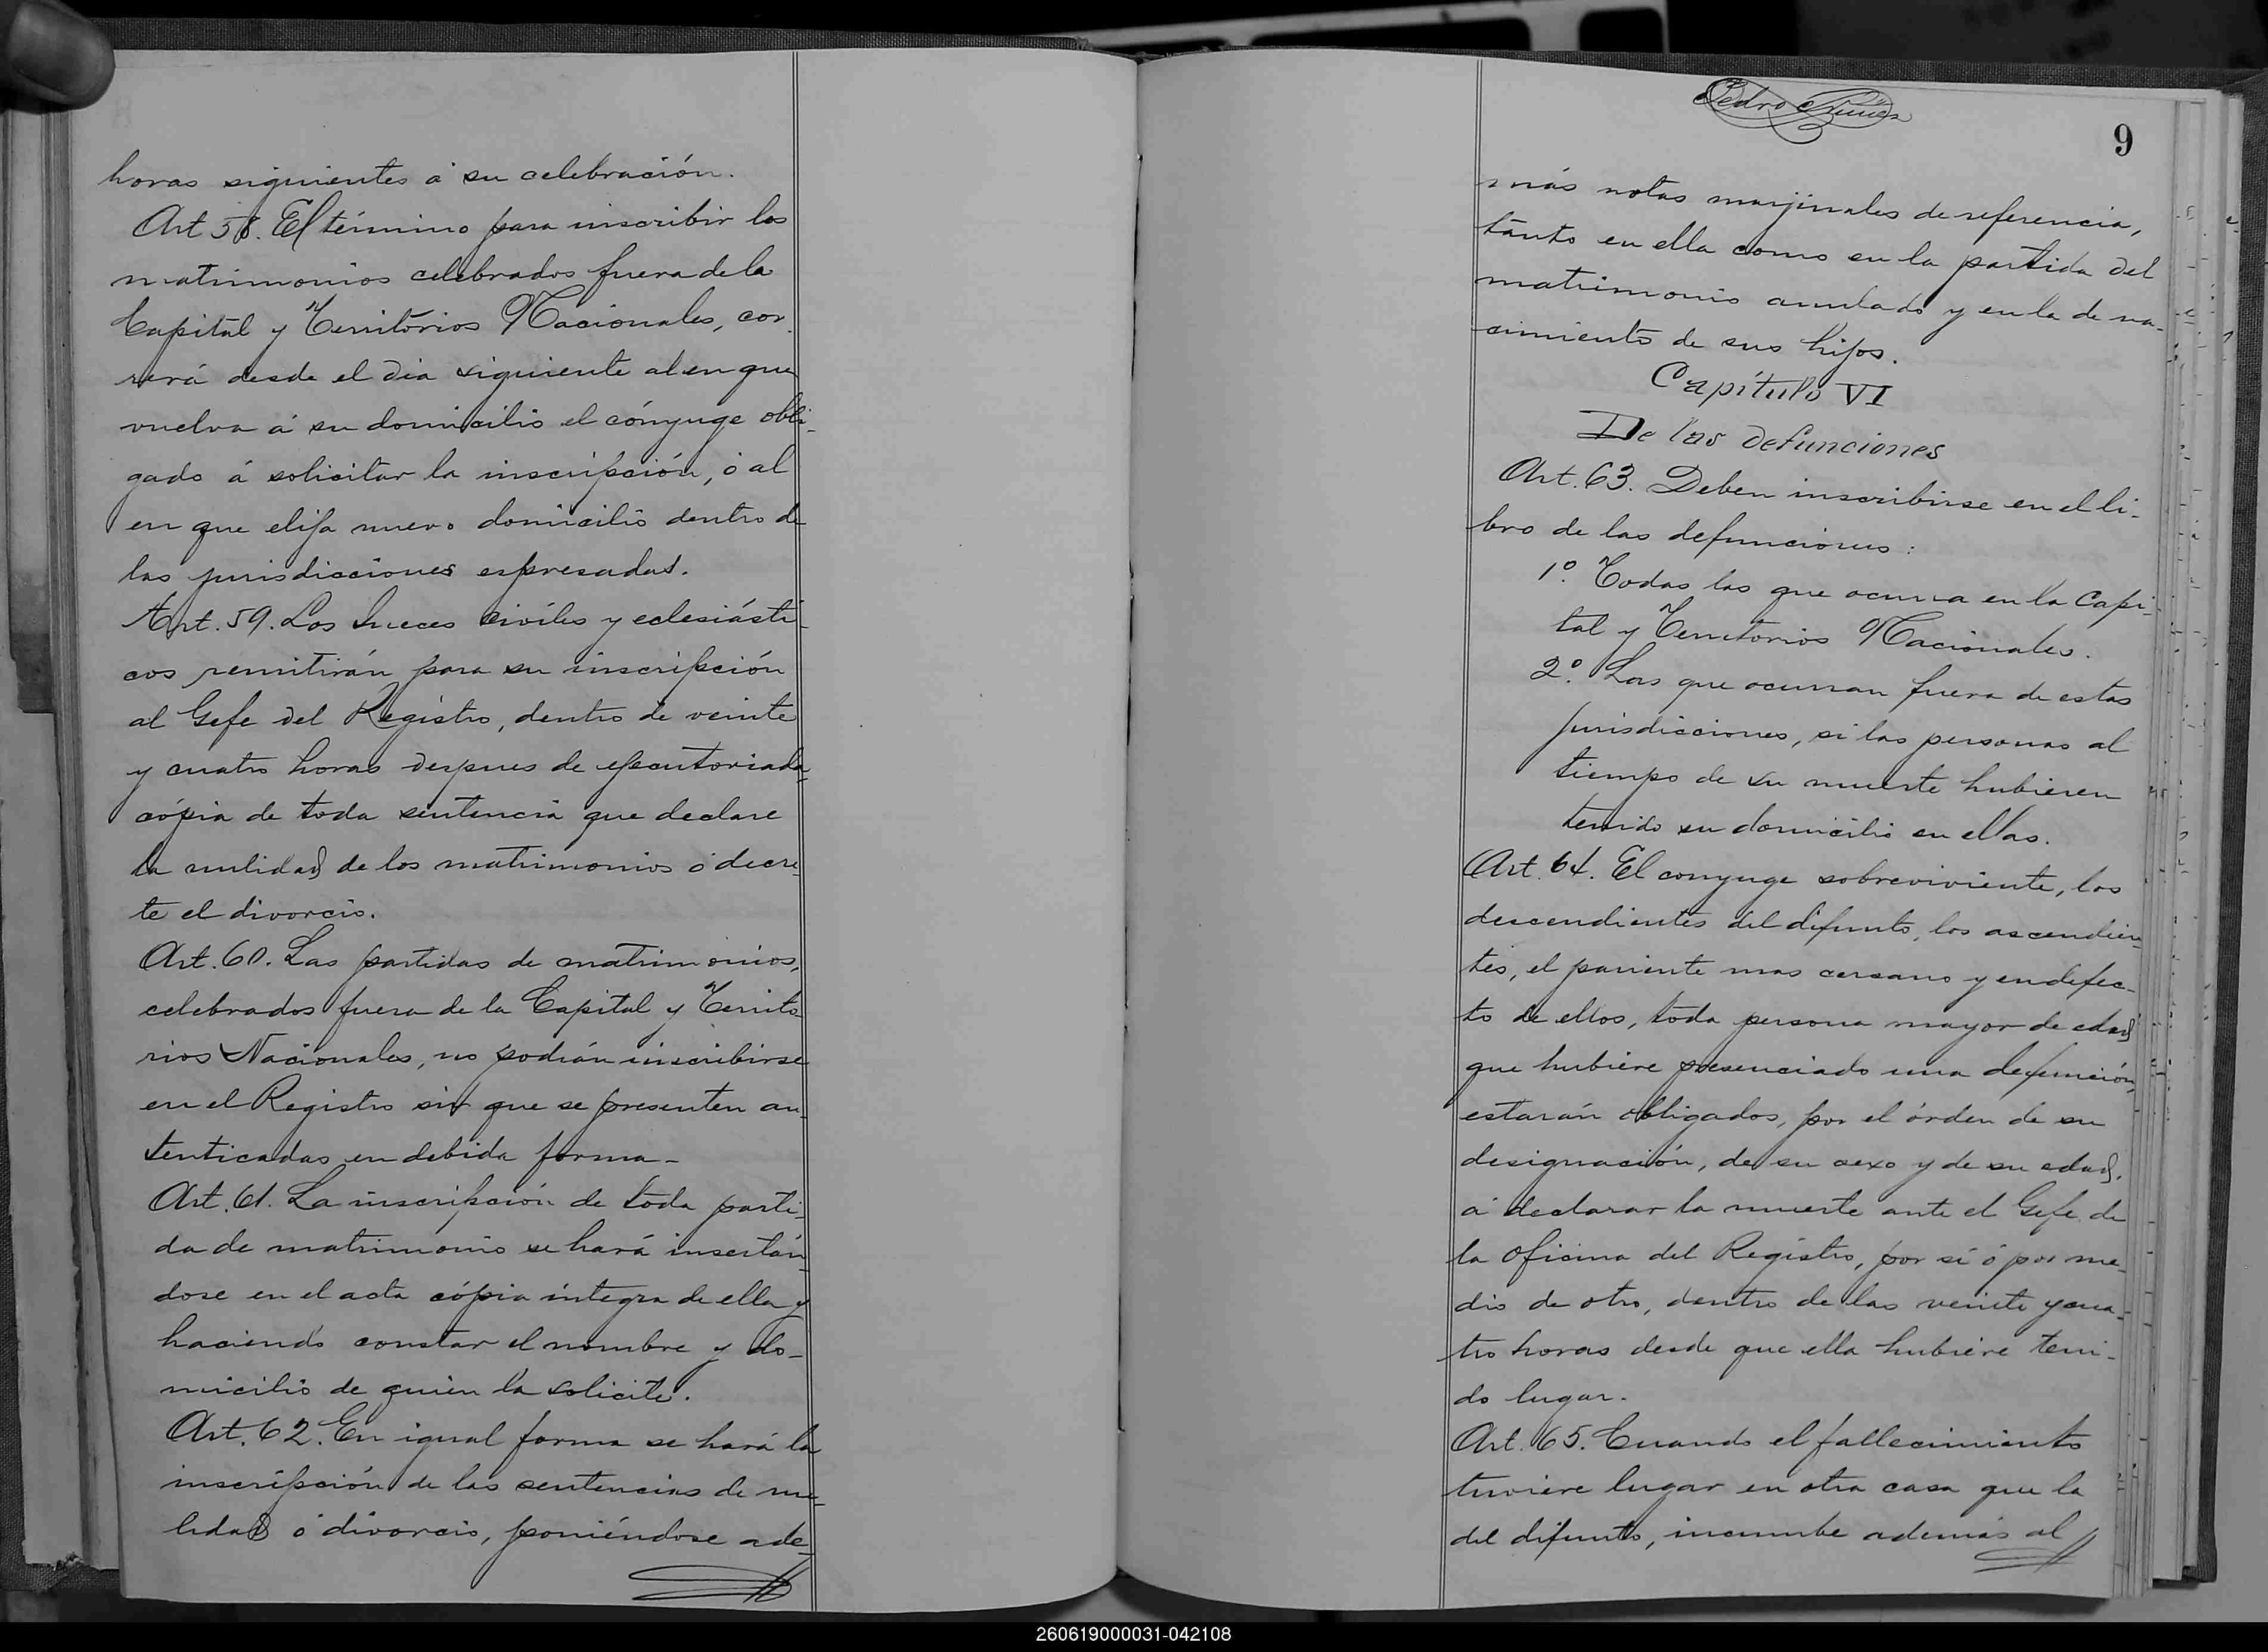 horas siguientes á su celebración.
Art 58. El término para inscribir los
matrimonios celebrados fuera de la
Capital y Territorios Nacionales, cor-
rerá desde el dia siguiente al en que
vuelva á su domicilio el cónyuge obli-
gado á solicitar la inscripción, ó al
en que elija nuevo domicilio dentro de
las jurisdicciones espresadas.
Art. 59. Los Jueces civiles y eclesiásti-
cos remitirán para su inscripción
al Gefe del Registro, dentro de veinte
y cuatro horas despues de ejecutoriada
cópia de toda sentencia que declare
la nulidad de los matrimonios ó decre-
te el divorcio.
Art. 60. Las partidas de matrimonios,
celebrados fuera de la Capital y Territo-
rios Nacionales, no podrán inscribirse
en el Registro sin que se presenten au-
tenticadas en debida forma-
Art. 61. La inscripción de toda parti-
da de matrimonio se hará insertán-
dose en el acta cópia integra de ella y
haciendo constar el nombre y do-
micilio de quien la solicite.
Art. 62. En igual forma se hará la
inscripción de las sentencias de nu-
lidad ó divorcio, poniéndose ade-
Pedro
9
más notas marjinales de referencia,
tanto en ella como en la partida del
matrimonio anulado y en la de na-
cimiento de sus hijos.
Capítulo VI
De las defunciones
Art. 63. Deben inscribirse en el li-
bro de las defunciones:
1º. Todas las que ocurra en la Capi-
tal y Territorios Nacionales.
2º. Las que ocurran fuera de estas
jurisdicciones, si las personas al
tiempo de su muerte hubieren
tenido su domicilio en ellas.
Art. 64. El conyuge sobreviviente, los
descendientes del difunto, los ascendien-
tes, el pariente mas cercano y en defec-
to de ellos, toda persona mayor de edad
que hubiere presenciado una defunción,
estarán obligados, por el órden de su
designación, de su sexo y de su edad,
á declarar la muerte ante el Gefe de
la oficina del Registro, por sí ó por me-
dio de otro, dentro de las veinte y cua-
tro horas desde que ella hubiere teni-
do lugar.
Art. 65. Cuando el fallecimiento
tuviere lugar en otra casa que la
del difunto, incumbe además al
260619000031-042108